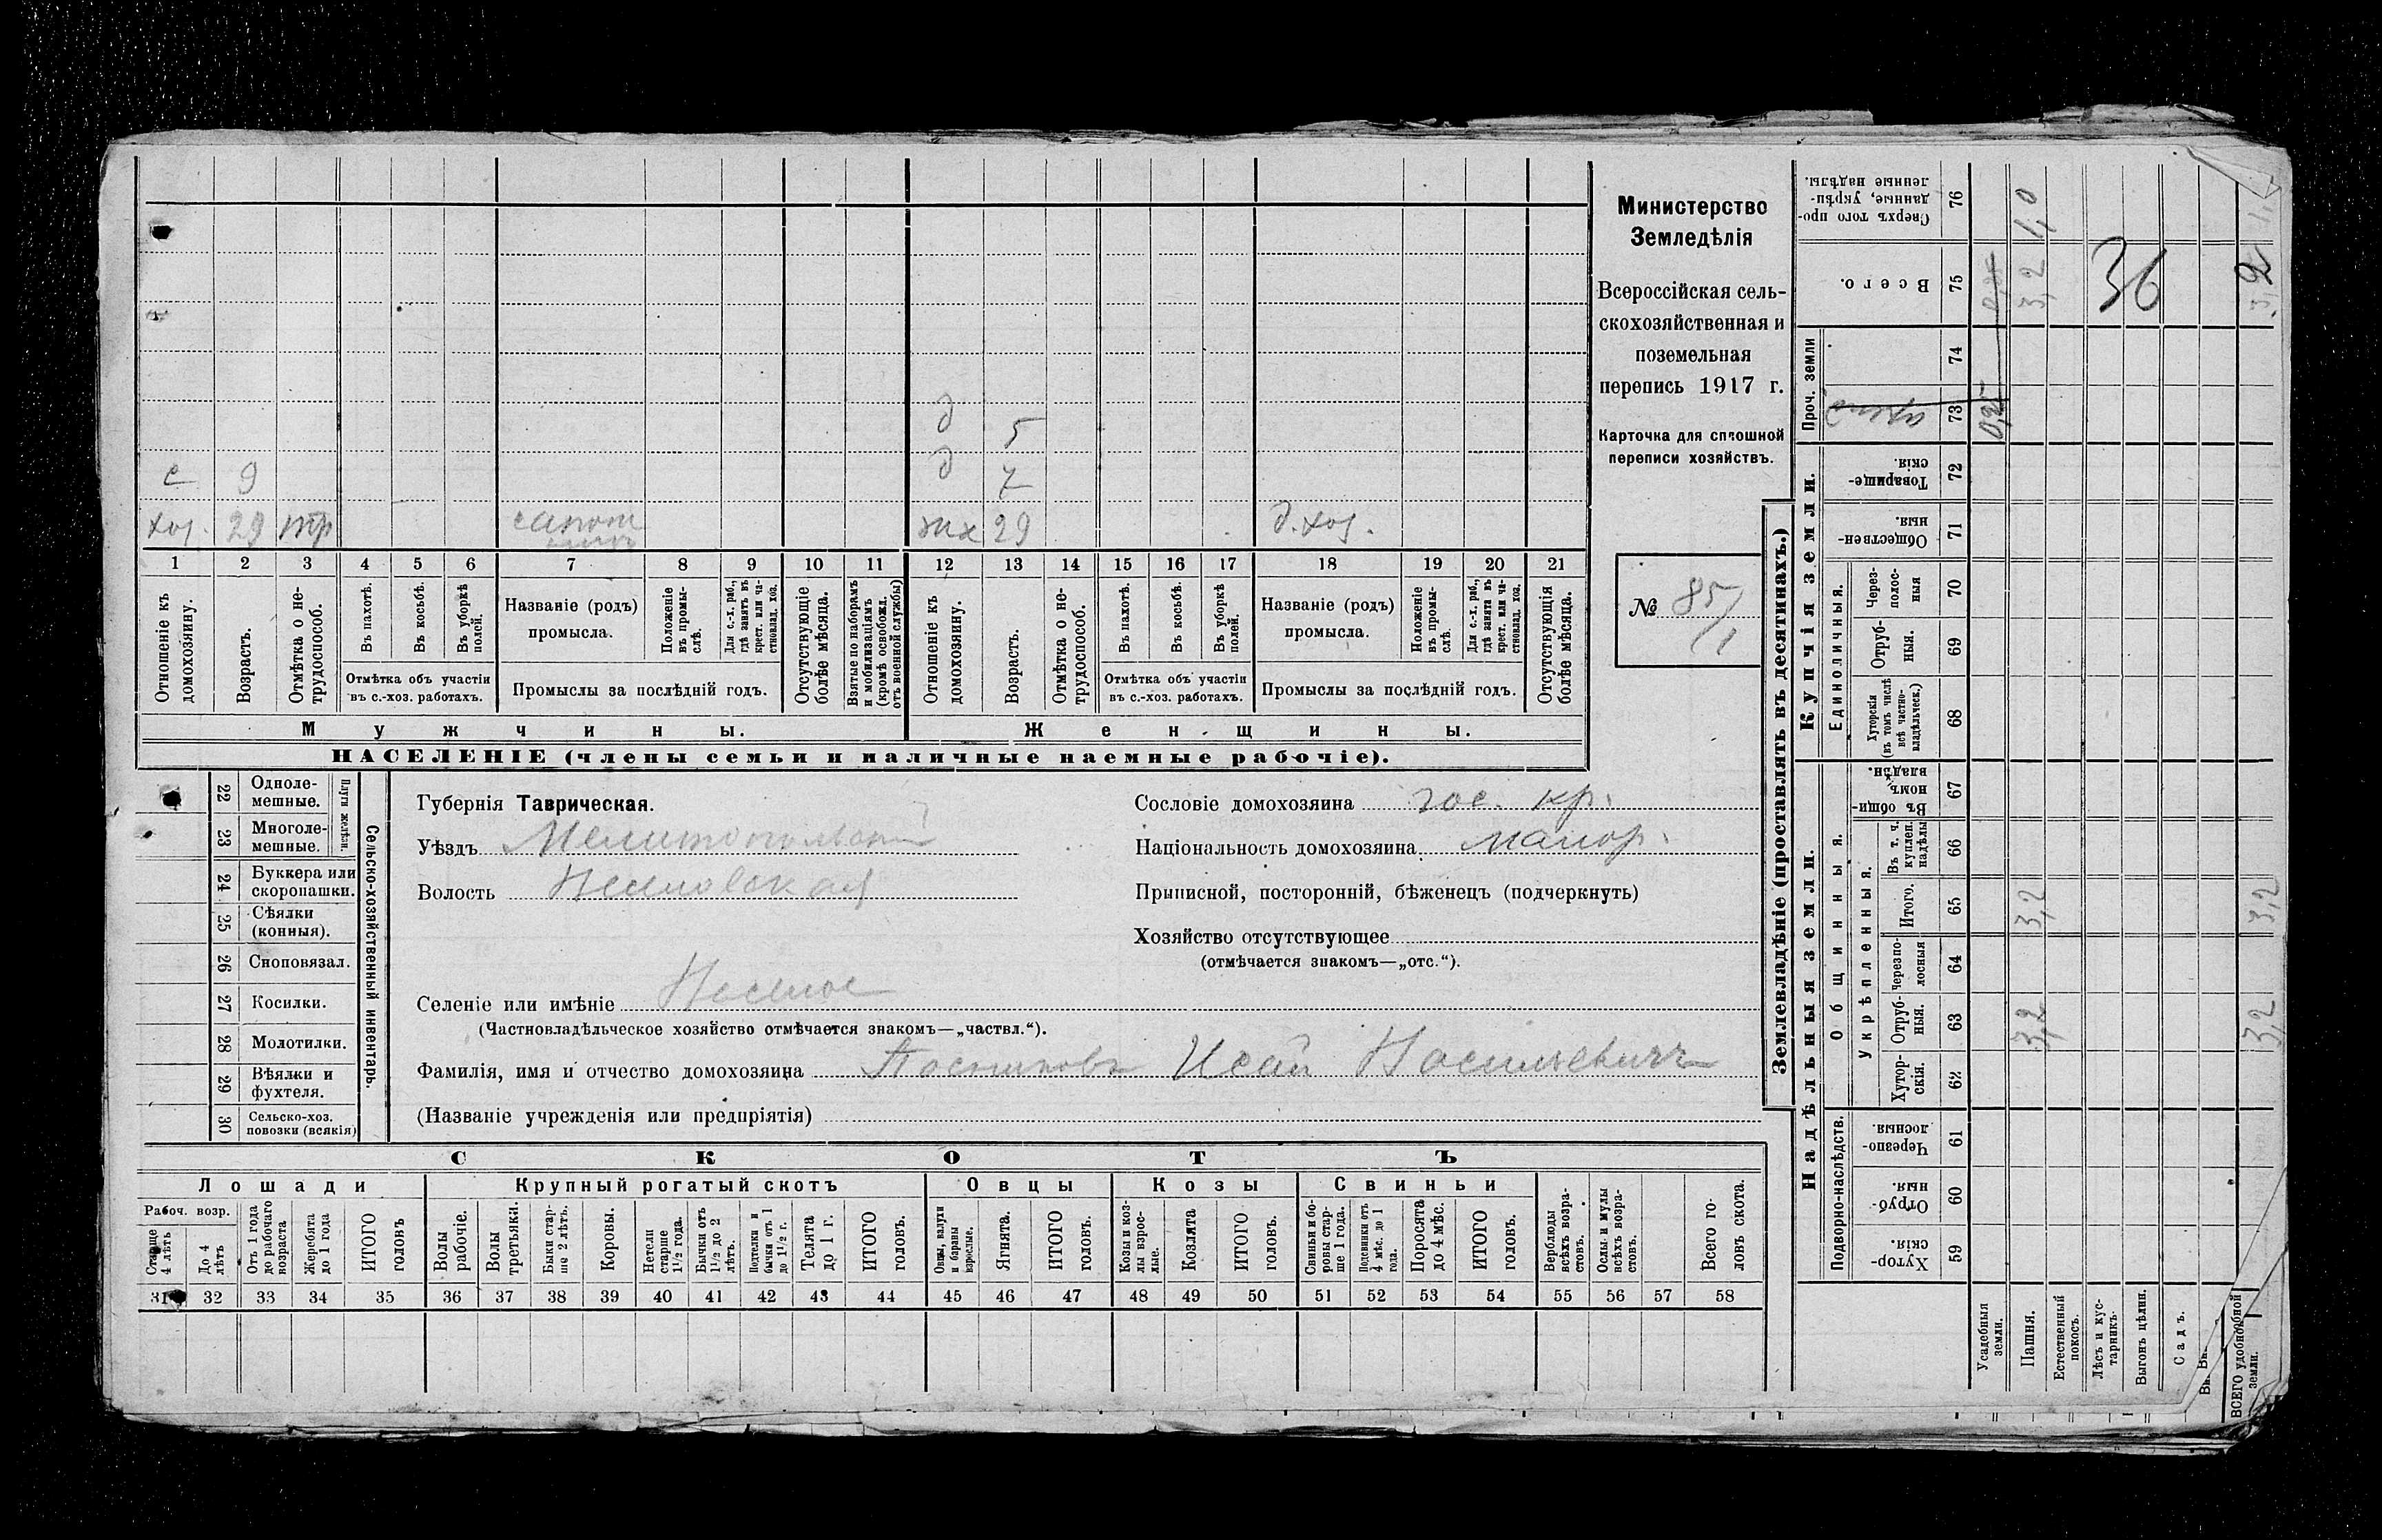 Министерство
Земледѣлія
Всероссійская сель-
скохозяйственная и
поземельная
перепись 1917 г.
Карточка для сплошной
переписи хозяйствъ.
№ 85/1
д 5
с 9 д 7
хоз. 29 тр сапож жх 29 д. хоз.
1 2 3 4 5 6 7 8 9 10 11 12 13 14 15 16 17 18 19 20 21
Отношеніе къ домохозяину.
Возрастъ.
Отмѣтка о не-трудоспособ.
Въ пахотѣ.
Въ косьбѣ.
Въ уборкѣ полей.
Отмѣтка объ участіи
въ с.-хоз. работахъ.
Названіе (родъ)
промысла.
Положеніе въ промы-слѣ.
Для с.-х. раб., гдѣ занятъ въ крест. или ча-стновлад. хоз.
Промыслы за послѣдній годъ.
Отсутствующіе болѣе мѣсяца.
Взятые по наборамъ и мобилизаціямъ (кромѣ освобожд. отъ военной службы)
Отношеніе къ домохозяину.
Возрастъ.
Отмѣтка о не-трудоспособ.
Въ пахотѣ.
Въ косьбѣ.
Въ уборкѣ полей.
Отмѣтка объ участіи
въ с.-хоз. работахъ.
Названіе (родъ)
промысла.
Положеніе въ промы-слѣ.
Для с.-х. раб., гдѣ занята въ крест. или ча-стновлад. хоз.
Промыслы за послѣдній годъ.
Отсутствующія болѣе мѣсяца.
Мужчины. Женщины.
НАСЕЛЕНІЕ (члены семьи и наличные наемные рабочіе).
Сельско-хозяйственный инвентарь.
Плуги желѣзн.
22 Одноле-
мешные.
23 Многоле-
мешные.
24 Буккера или
скоропашки.
25 Сѣялки
(конныя).
26 Сноповязал.
27 Косилки.
28 Молотилки.
29 Вѣялки и
фухтеля.
30 Сельско-хоз.
повозки (всякія)
Губернія Таврическая.
Уѣздъ Мелитопольскій
Волость
Селеніе или имѣніе
(Частновладѣльческое хозяйство отмѣчается знакомъ—„частвл.“).
Фамилія, имя и отчество домохозяина Исай
(Названіе учрежденія или предпріятія)
Сословіе домохозяина гос. кр.
Національность домохозяина малор.
Приписной, посторонній, бѣженецъ (подчеркнуть)
Хозяйство отсутствующее
(отмѣчается знакомъ—„отс.“).
СКОТЪ
Лошади Крупный рогатый скотъ Овцы Козы Свиньи
Рабоч. возр.
Старше 4 лѣтъ
До 4 лѣтъ
Отъ 1 года до рабочаго возраста
Жеребята до 1 года
ИТОГО головъ
Волы рабочіе.
Волы третьяки.
Быки стар-ше 2 лѣтъ.
Коровы.
Нетели старше 1½ года.
Бычки отъ 1½ до 2 лѣтъ.
Подтелки и бычки отъ 1 до 1½ г.
Телята до 1 г.
ИТОГО головъ.
Овцы, валухи и бараны взрослые.
Ягнята.
ИТОГО головъ.
Козы и коз-лы взрос-лые.
Козлята
ИТОГО головъ.
Свиньи и бо-ровы стар-ше 1 года.
Подсвинки отъ 4 мѣс. до 1 года.
Поросята до 4 мѣс.
ИТОГО головъ.
Верблюды всѣхъ возра-стовъ.
Ослы и мулы всѣхъ возра-стовъ.
Всего го-ловъ скота.
31 32 33 34 35 36 37 38 39 40 41 42 43 44 45 46 47 48 49 50 51 52 53 54 55 56 57 58
Землевладѣніе (проставлять въ десятинахъ.)
Надѣльныя земли.
Купчія земли.
Проч. земли
Подворно-наслѣдств.
Общинныя.
Укрѣпленныя.
Единоличныя.
Сверхъ того про-данные, укрѣп-ленные надѣлы. 76 4,0
Всего. 75 3,2 36
74
73 0,25
Товарище-скія. 72
Обществен-ныя. 71
Через-полос-ныя 70
Отруб-ныя. 69
Хуторскія (въ томъ числѣ всѣ частно-владѣльческ.) 68
Въ общин-номъ владѣн. 67
Въ т. ч. куплен. надѣлы 66
Итого. 65 3,2 3,2
Черезпо-лосныя 64
Отруб-ныя. 63 3,2 3,2
Хутор-скія. 62
Черезпо-лосныя. 61
Отруб-ныя. 60
Хутор-скія. 59
Усадебныя земли.
Пашня.
Естественный покосъ.
Лѣсъ и кус-тарникъ.
Выгонъ цѣлин.
Садъ.
ВСЕГО удобной земли.